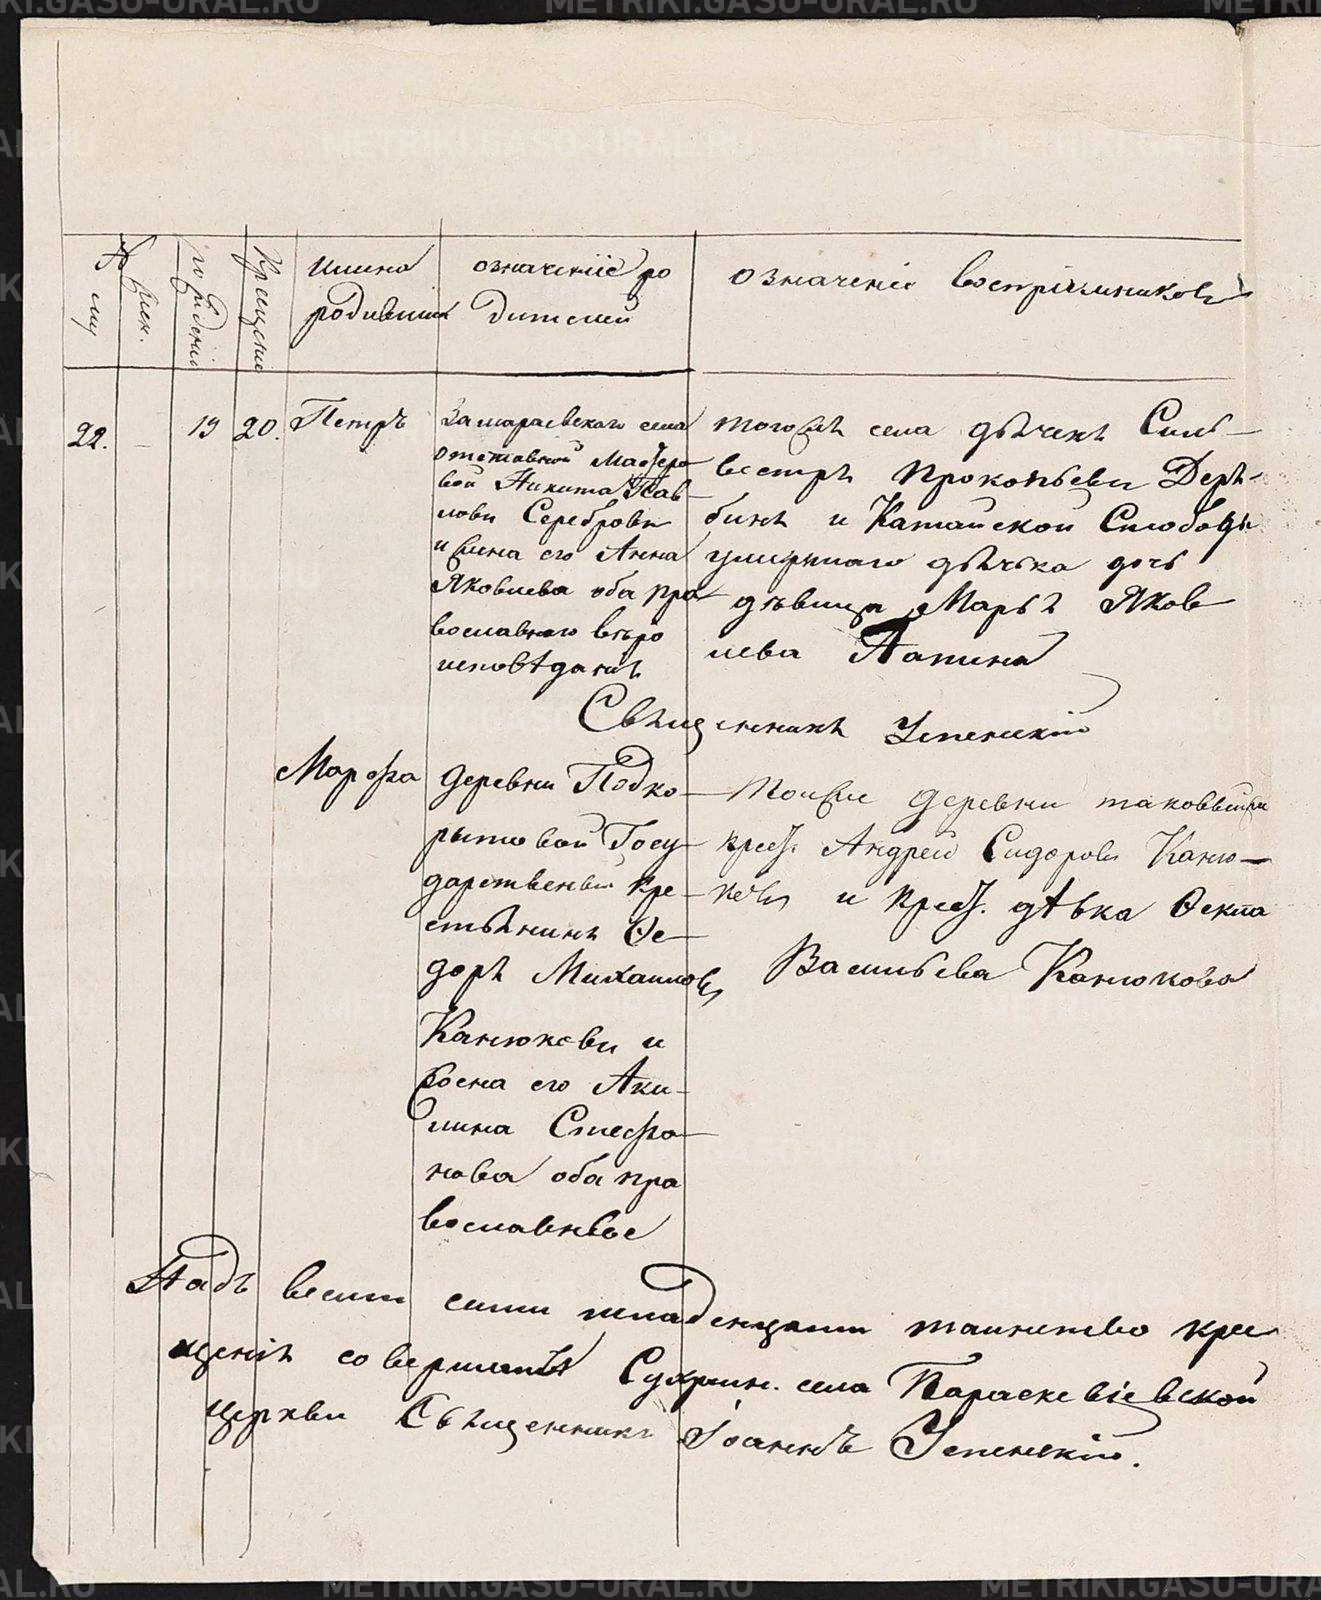 Муж.
Жен.
рождение
крещение
имена
родивших
означение ро
дителей
означение восприемников
22.
19
20.
Петръ
Замараевскаго села
отставной Мастеро
вой Никита Пав
ловъ Серебровъ
и жена его Анна
Яковлева оба пра
вославнаго вѣро
исповѣданія
тогоже села дьячекъ Силь
вестръ Прокопьевъ Деря
бинъ и Катайской Слободы
умершаго дьячька дочь
дѣвица Марья Яков
лева Лапина
Священникъ Успенскій
Марфа
деревни Подко
рытовой Госу
дарственный кре
стьянинъ Ѳе
доръ Михаиловъ
Канюковъ и
жена его Аки
лина Стефа
нова оба пра
вославные
тоиже деревни таковыйже
крест. Андрей Сидоровъ Каню
ковъ и крест. дѣвка Ѳекла
Васильева Канюкова
Надъ всеми сими младенцами таинство кре
щенія совершалъ Сухрин. села Параскевіевской
церкви Священникъ Іоаннъ Успенскій.
METRIKI.GASO-URAL.RU